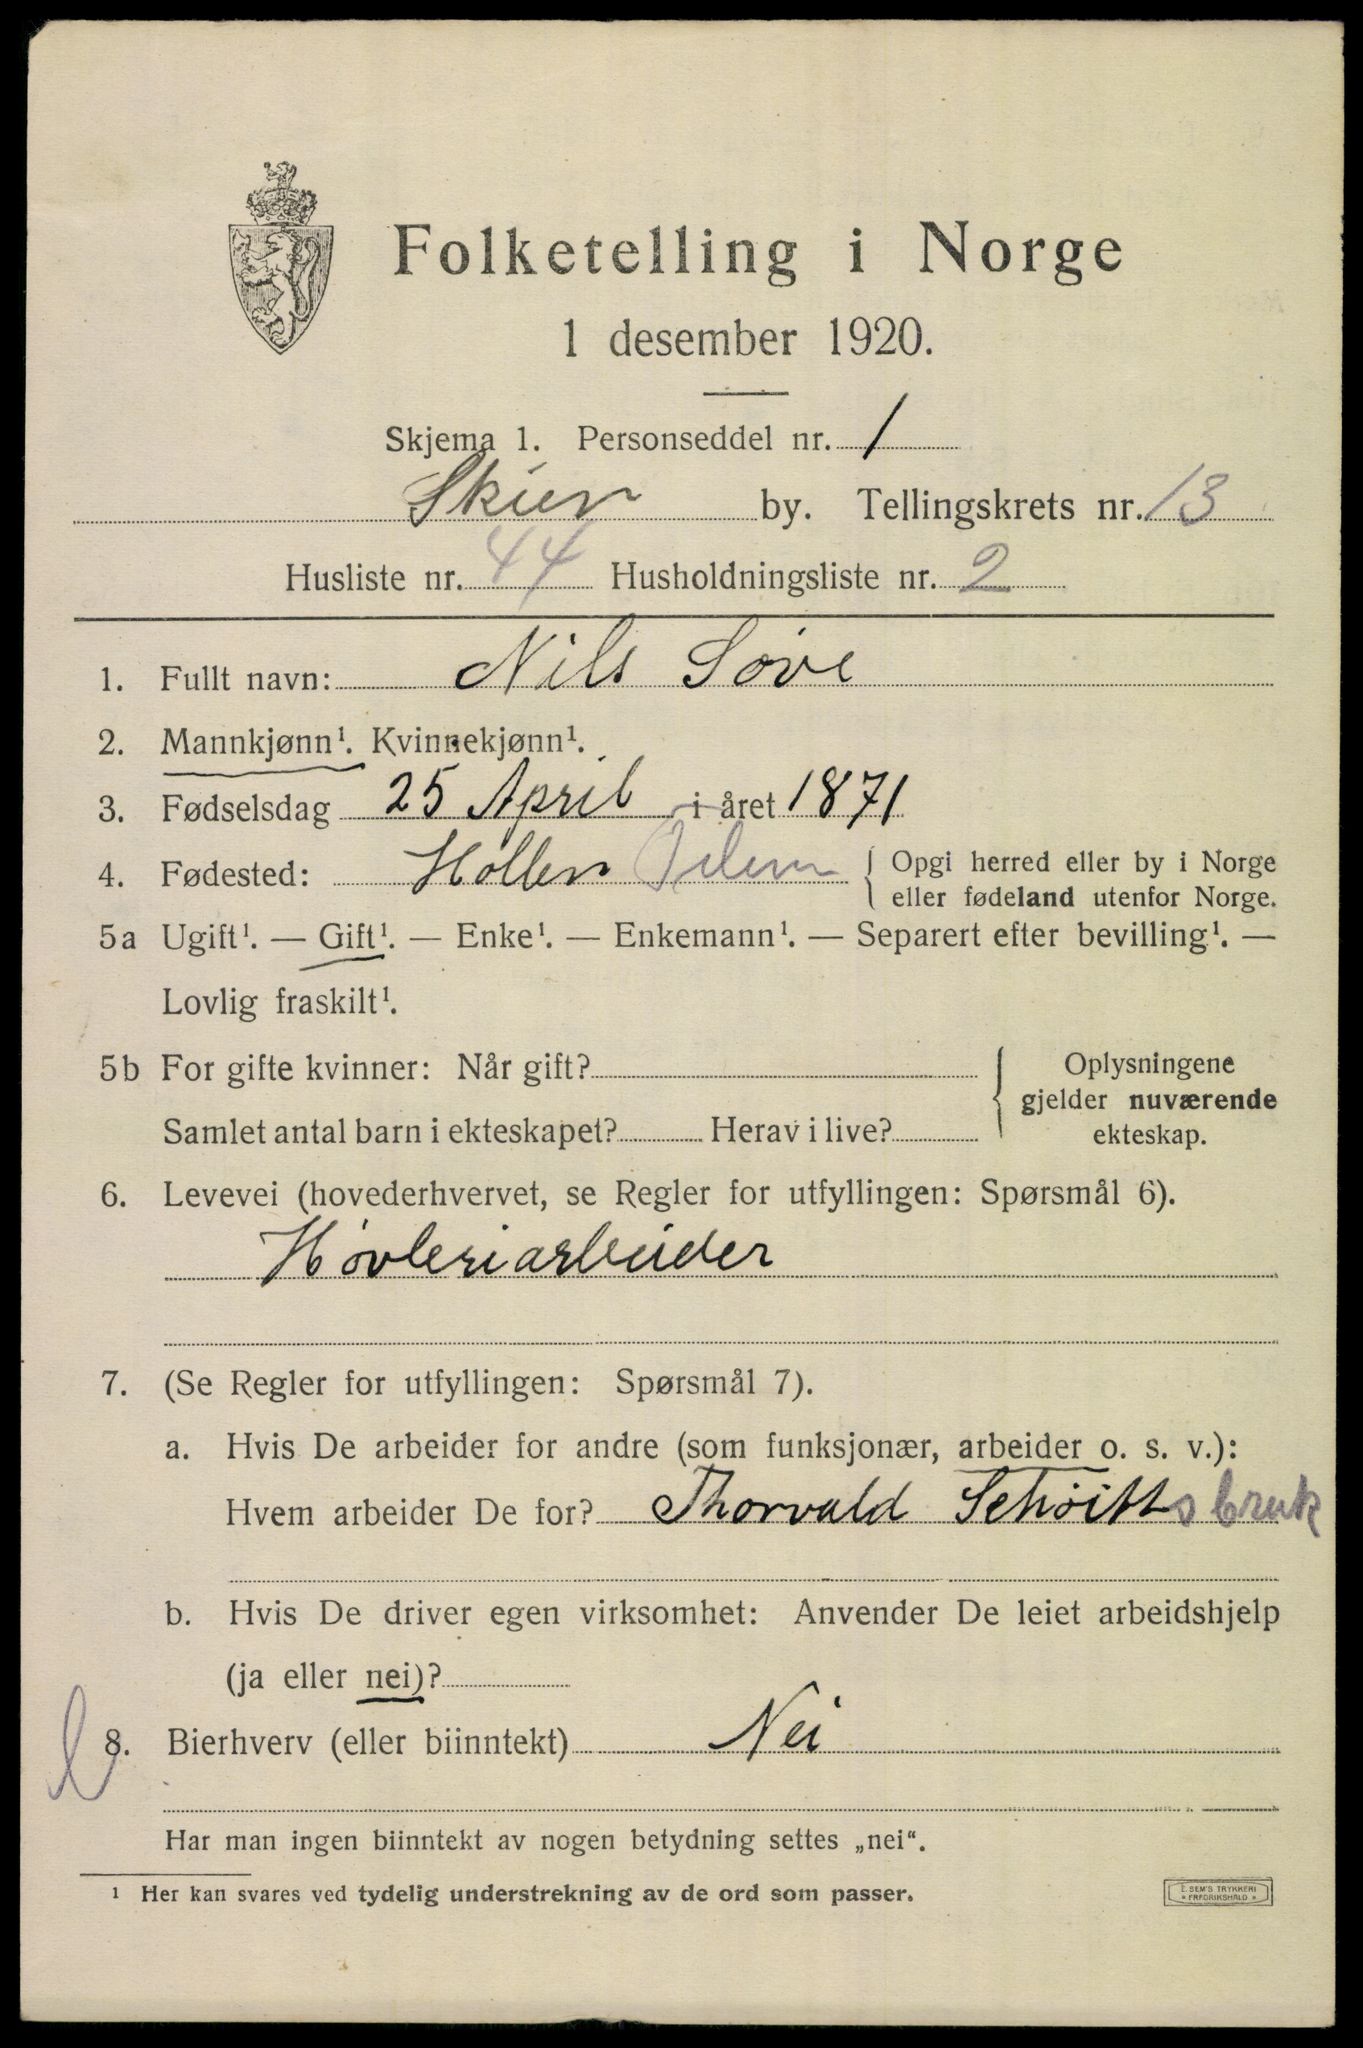 Folketelling i Norge
1 desember 1920.
Skjema 1. Personseddel nr. 1
Skien by. Tellingskrets nr. 13
Husliste nr. 44 Husholdningsliste nr. 2
1. Fullt navn: Nils Søve
2. Mannkjønn¹. Kvinnekjønn¹.
3. Fødselsdag 25 April i året 1871
4. Fødested: Hollen { Opgi herred eller by i Norge
eller fødeland utenfor Norge.
5a Ugift¹. — Gift¹. — Enke¹. — Enkemann¹. — Separert efter bevilling¹. —
Lovlig fraskilt¹.
5b For gifte kvinner: Når gift? { Oplysningene
gjelder nuværende
Samlet antal barn i ekteskapet? Herav i live? ekteskap.
6. Levevei (hovederhvervet, se Regler for utfyllingen: Spørsmål 6).
Høvleriarbeider
7. (Se Regler for utfyllingen: Spørsmål 7).
a. Hvis De arbeider for andre (som funksjonær, arbeider o. s. v.):
Hvem arbeider De for? Thorvald Schøitts bruk
b. Hvis De driver egen virksomhet: Anvender De leiet arbeidshjelp
(ja eller nei)?
8. Bierhverv (eller biinntekt) Nei
Har man ingen biinntekt av nogen betydning settes „nei“.
¹ Her kan svares ved tydelig understrekning av de ord som passer.
E. SEM'S TRYKKERI
* FREDRIKSHALD *